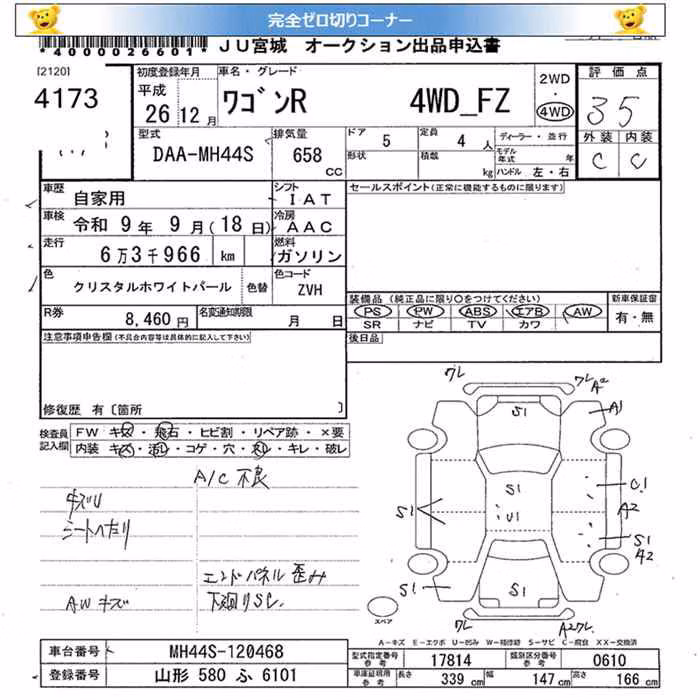 完全ゼロ切りコーナー
*4000026601*
JU宮城 オークション出品申込書
[2120]
4173
初度登録年月
平成
26年12月
車名・グレード
ワゴンR 4WD_FZ
2WD
・
4WD
評価点
35
外装 内装
C C
型式
DAA-MH44S
排気量
658 CC
ドア 5
定員 4 人
形状 積載 kg
ディーラー・並行
モデル年式 年
ハンドル 左・右
車歴 自家用
シフト IAT
車検 令和 9年 9月(18日)
冷房 AAC
走行 6万3千966 km
燃料 ガソリン
色 クリスタルホワイトパール 色替
色コード ZVH
R券 8,460円
名変通知期限 月 日
セールスポイント(正常に機能するものに限ります)
装備品 (純正品に限り○をつけてください)
PS PW ABS エアB AW
SR ナビ TV カワ
新車保証書
有・無
後日品
注意事項申告欄(不具合内容等は具体的に記入して下さい)
修復歴 有〔箇所 〕
検査員記入欄
FW キズ・飛石・ヒビ割・リペア跡・×要
内装 キズ・汚レ・コゲ・穴・スレ・キレ・破レ
A/C 不良
キズU
シートヘたり
エンドパネル 歪み
AW キズ
下廻りSし
ワレ
ワレ
S1
A1
S1
S1
U1
C1
A2
S1
S1
S1
ワレ
A2ワレ
スペア
A-キズ E-エクボ U-凹み W-補修跡 S-サビ C-腐食 XX-交換済
車台番号 MH44S-120468
登録番号 山形 580 ふ 6101
型式指定番号 参考 17814
類別区分番号 参考 0610
車庫証明用 参考 長さ 339 cm 幅 147 cm 高さ 166 cm